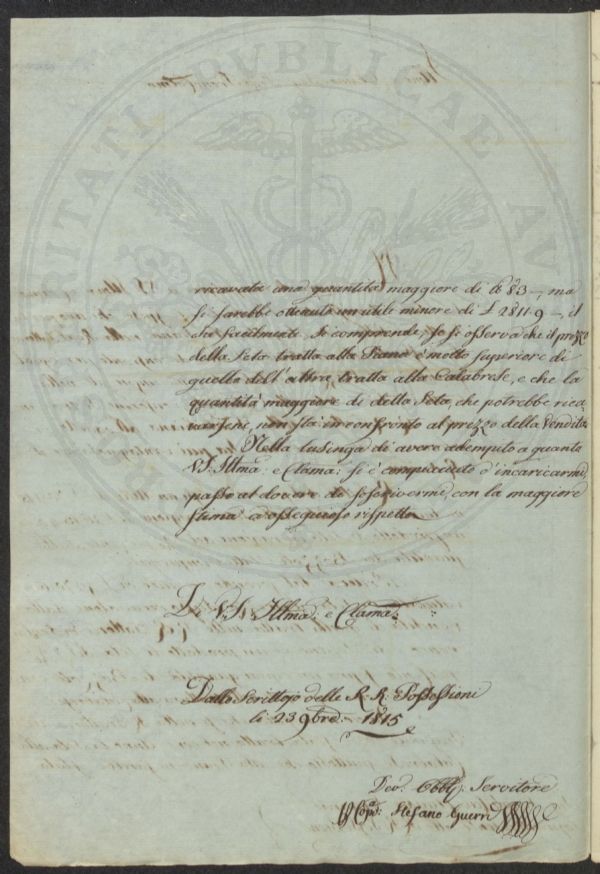 PVBLICAE
ricavata una quantità maggiore di ℔ 83 –, ma
si sarebbe ottenuto un utile minore di £ 2811.9 –, il
che facilmente si comprende, se si osserva che il prezzo
della Seta tratta alla Piano è molto superiore di
quello dell'altra tratta alla Calabrese, e che la
quantità maggiore di della Seta, che potrebbe rica,
varsene, non stà in confronto al prezzo della Vendita
Nella lusinga di avere adempito a quanto
V.S. Illma: e Clama: si è compiaciuto d'incaricarmi,
passo al dovere di soscrivermi, con la maggiore
stima ed ossequioso rispetto
Di V.S. Illma: e Clama:
Dallo Scrittojo delle R. R. Possessioni
li 23 9bre – 1815
Devo. Obblg. Servitore
Stefano Guerri